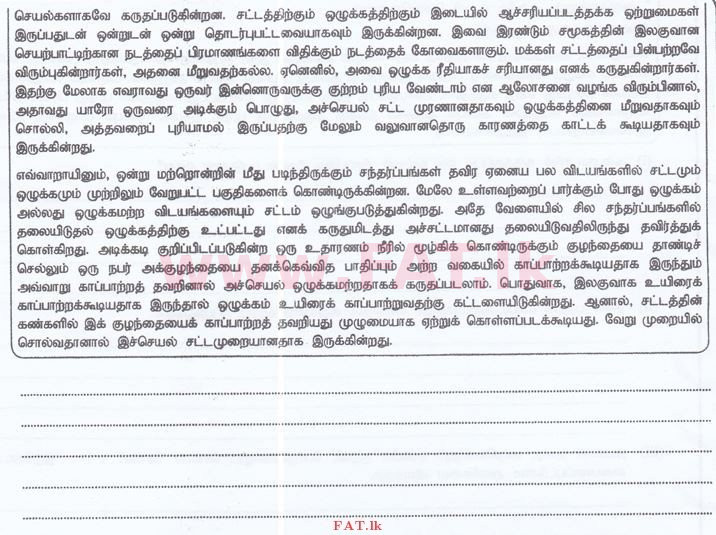 செயல்களாகவே கருதப்படுகின்றன. சட்டத்திற்கும் ஒழுக்கத்திற்கும் இடையில் ஆச்சரியப்படத்தக்க ஒற்றுமைகள்
இருப்பதுடன் ஒன்றுடன் ஒன்று தொடர்புபட்டவையாகவும் இருக்கின்றன. இவை இரண்டும் சமூகத்தின் இலகுவான
செயற்பாட்டிற்கான நடத்தைப் பிரமாணங்களை விதிக்கும் நடத்தைக் கோவைகளாகும். மக்கள் சட்டத்தைப் பின்பற்றவே
விரும்புகின்றார்கள், அதனை மீறுவதற்கல்ல. ஏனெனில், அவை ஒழுக்க ரீதியாகச் சரியானது எனக் கருதுகின்றார்கள்.
இதற்கு மேலாக எவராவது ஒருவர் இன்னொருவருக்கு குற்றம் புரிய வேண்டாம் என ஆலோசனை வழங்க விரும்பினால்,
அதாவது யாரோ ஒருவரை அடிக்கும் பொழுது, அச்செயல் சட்ட முரணானதாகவும் ஒழுக்கத்தினை மீறுவதாகவும்
சொல்லி, அத்தவறைப் புரியாமல் இருப்பதற்கு மேலும் வலுவானதொரு காரணத்தை காட்டக் கூடியதாகவும்
இருக்கின்றது.
எவ்வாறாயினும், ஒன்று மற்றொன்றின் மீது படிந்திருக்கும் சந்தர்ப்பங்கள் தவிர ஏனைய பல விடயங்களில் சட்டமும்
ஒழுக்கமும் முற்றிலும் வேறுபட்ட பகுதிகளைக் கொண்டிருக்கின்றன. மேலே உள்ளவற்றைப் பார்க்கும் போது ஒழுக்கம்
அல்லது ஒழுக்கமற்ற விடயங்களையும் சட்டம் ஒழுங்குபடுத்துகிறது. அதே வேளையில் சில சந்தர்ப்பங்களில்
தலையிடுதல் ஒழுக்கத்திற்கு உட்பட்டது எனக் கருதுமிடத்து அச்சட்டமானது தலையிடுவதிலிருந்து தவிர்த்துக்
கொள்கிறது. அடிக்கடி குறிப்பிடப்படுகின்ற ஒரு உதாரணம் நீரில் மூழ்கிக் கொண்டிருக்கும் குழந்தையை தாண்டிச்
செல்லும் ஒரு நபர் அக்குழந்தையை தனக்கெவ்வித பாதிப்பும் அற்ற வகையில் காப்பாற்றக்கூடியதாக இருந்தும்
அவ்வாறு காப்பாற்றத் தவறினால் அச்செயல் ஒழுக்கமற்றதாகக் கருதப்படலாம். பொதுவாக, இலகுவாக உயிரைக்
காப்பாற்றக்கூடியதாக இருந்தால் ஒழுக்கம் உயிரைக் காப்பாற்றுவதற்கு கட்டளையிடுகின்றது. ஆனால், சட்டத்தின்
கண்களில் இக் குழந்தையைக் காப்பாற்றத் தவறியது முழுமையாக ஏற்றுக் கொள்ளப்படக்கூடியது. வேறு முறையில்
சொல்வதானால் இச்செயல் சட்டமுறையானதாக இருக்கின்றது.
www.FAT.lk
FAT.lk